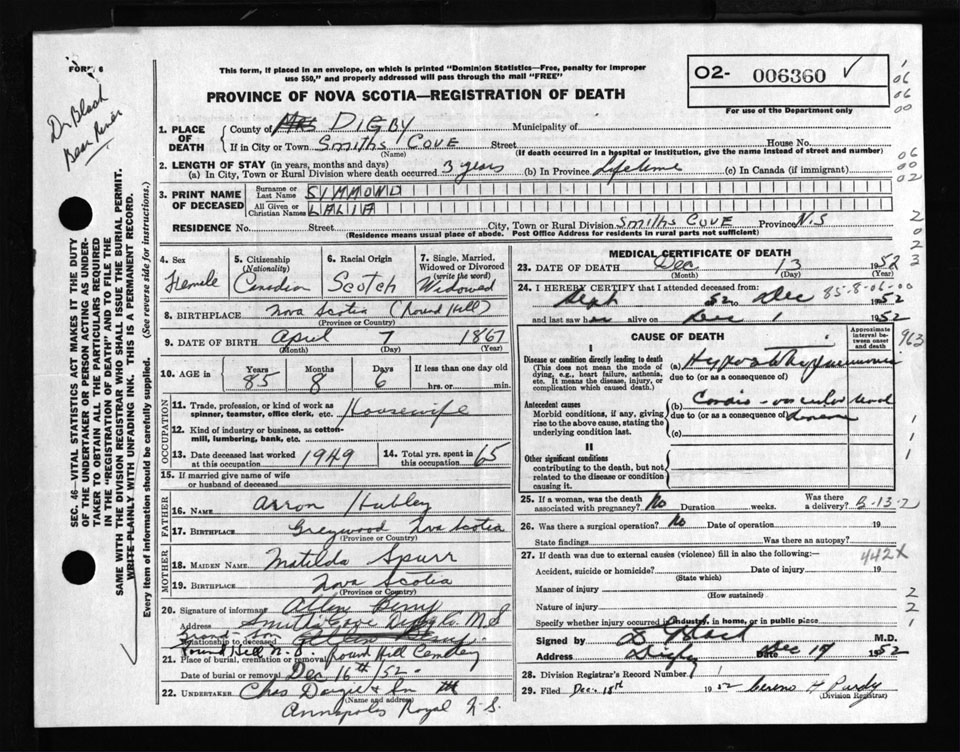 FORM 6
This form, if placed in an envelope, on which is printed "Dominion Statistics—Free, penalty for improper
use $50," and properly addressed will pass through the mail "FREE"
O2- 006360 ✓
PROVINCE OF NOVA SCOTIA—REGISTRATION OF DEATH
For use of the Department only
Dr Black
Bear River
06
06
00
1. PLACE OF DEATH
County of DIGBY Municipality of
If in City or Town Smiths Cove Street House No.
(Name) (If death occurred in a hospital or institution, give the name instead of street and number)
06
00
02
2. LENGTH OF STAY (in years, months and days)
(a) In City, Town or Rural Division where death occurred 3 years (b) In Province Lifetime (c) In Canada (if immigrant)
3. PRINT NAME OF DECEASED
Surname or Last Name SYMMOND
All Given or Christian Names LALIA
RESIDENCE No. Street City, Town or Rural Division Smiths Cove Province N.S
(Residence means usual place of abode. Post Office Address for residents in rural parts not sufficient)
2
0
2
3
4. Sex Female
5. Citizenship (Nationality) Canadian
6. Racial Origin Scotch
7. Single, Married, Widowed or Divorced (write the word) Widowed
8. BIRTHPLACE Nova Scotia (Round Hill)
(Province or Country)
9. DATE OF BIRTH April 7 1867
(Month) (Day) (Year)
10. AGE in Years 85 Months 8 Days 6 If less than one day
hrs. or min.
OCCUPATION
11. Trade, profession, or kind of work as
spinner, teamster, office clerk, etc. Housewife
12. Kind of industry or business, as cotton-
mill, lumbering, bank, etc.
13. Date deceased last worked
at this occupation 1949
14. Total yrs. spent in
this occupation 65
15. If married give name of wife
or husband of deceased
FATHER
16. NAME Arron Hubley
17. BIRTHPLACE Greywood Nova Scotia
(Province or Country)
MOTHER
18. MAIDEN NAME Matilda Spurr
19. BIRTHPLACE Nova Scotia
(Province or Country)
20. Signature of informant Berry
Address Smiths Cove Digby Co. N.S
Relationship to deceased Grand-Son
Round Hill N.S.
21. Place of burial, cremation or removal Round Hill Cemetery
Date of burial or removal Dec 16th /52
22. UNDERTAKER Chas & Son
(Name and address)
Annapolis Royal N.S.
MEDICAL CERTIFICATE OF DEATH
23. DATE OF DEATH Dec 13 1952
(Month) (Day)
24. I HEREBY CERTIFY that I attended deceased from: 85-8-06-00
Sept 52 to Dec 1952
and last saw her alive on Dec 1 1952
CAUSE OF DEATH
Approximate interval between onset and death
963
I
Disease or condition directly leading to death
(This does not mean the mode of
dying, e.g., heart failure, asthenia,
etc. It means the disease, injury, or
complication which caused death.)
(a) Hypostatic pneumonia
due to (or as a consequence of)
Antecedent causes
Morbid conditions, if any, giving
rise to the above cause, stating the
underlying condition last.
(b) Cardio-vascular
due to (or as a consequence of) disease
(c)
II
Other significant conditions
contributing to the death, but not
related to the disease or condition
causing it.
1
1
1
25. If a woman, was the death
associated with pregnancy? No Duration weeks. Was there
a delivery? B-13-2
26. Was there a surgical operation? No Date of operation 19
State findings Was there an autopsy?
27. If death was due to external causes (violence) fill in also the following:— 442X
Accident, suicide or homicide? Date of injury 19
(State which)
Manner of injury
(How sustained)
Nature of injury
Specify whether injury occurred in industry, in home, or in public place
2
2
1
Signed by Black M.D.
Address Digby Date Dec 17 1952
28. Division Registrar's Record Number
29. Filed Dec. 18th 1952 H Purdy
(Division Registrar)
SEC. 46—VITAL STATISTICS ACT MAKES IT THE DUTY
OF THE UNDERTAKER OR PERSON ACTING AS UNDER-
TAKER TO OBTAIN ALL THE PARTICULARS REQUIRED
IN THE "REGISTRATION OF DEATH" AND TO FILE THE
SAME WITH THE DIVISION REGISTRAR WHO SHALL ISSUE THE BURIAL PERMIT.
WRITE PLAINLY WITH UNFADING INK. THIS IS A PERMANENT RECORD.
Every item of information should be carefully supplied. (See reverse side for instructions.)